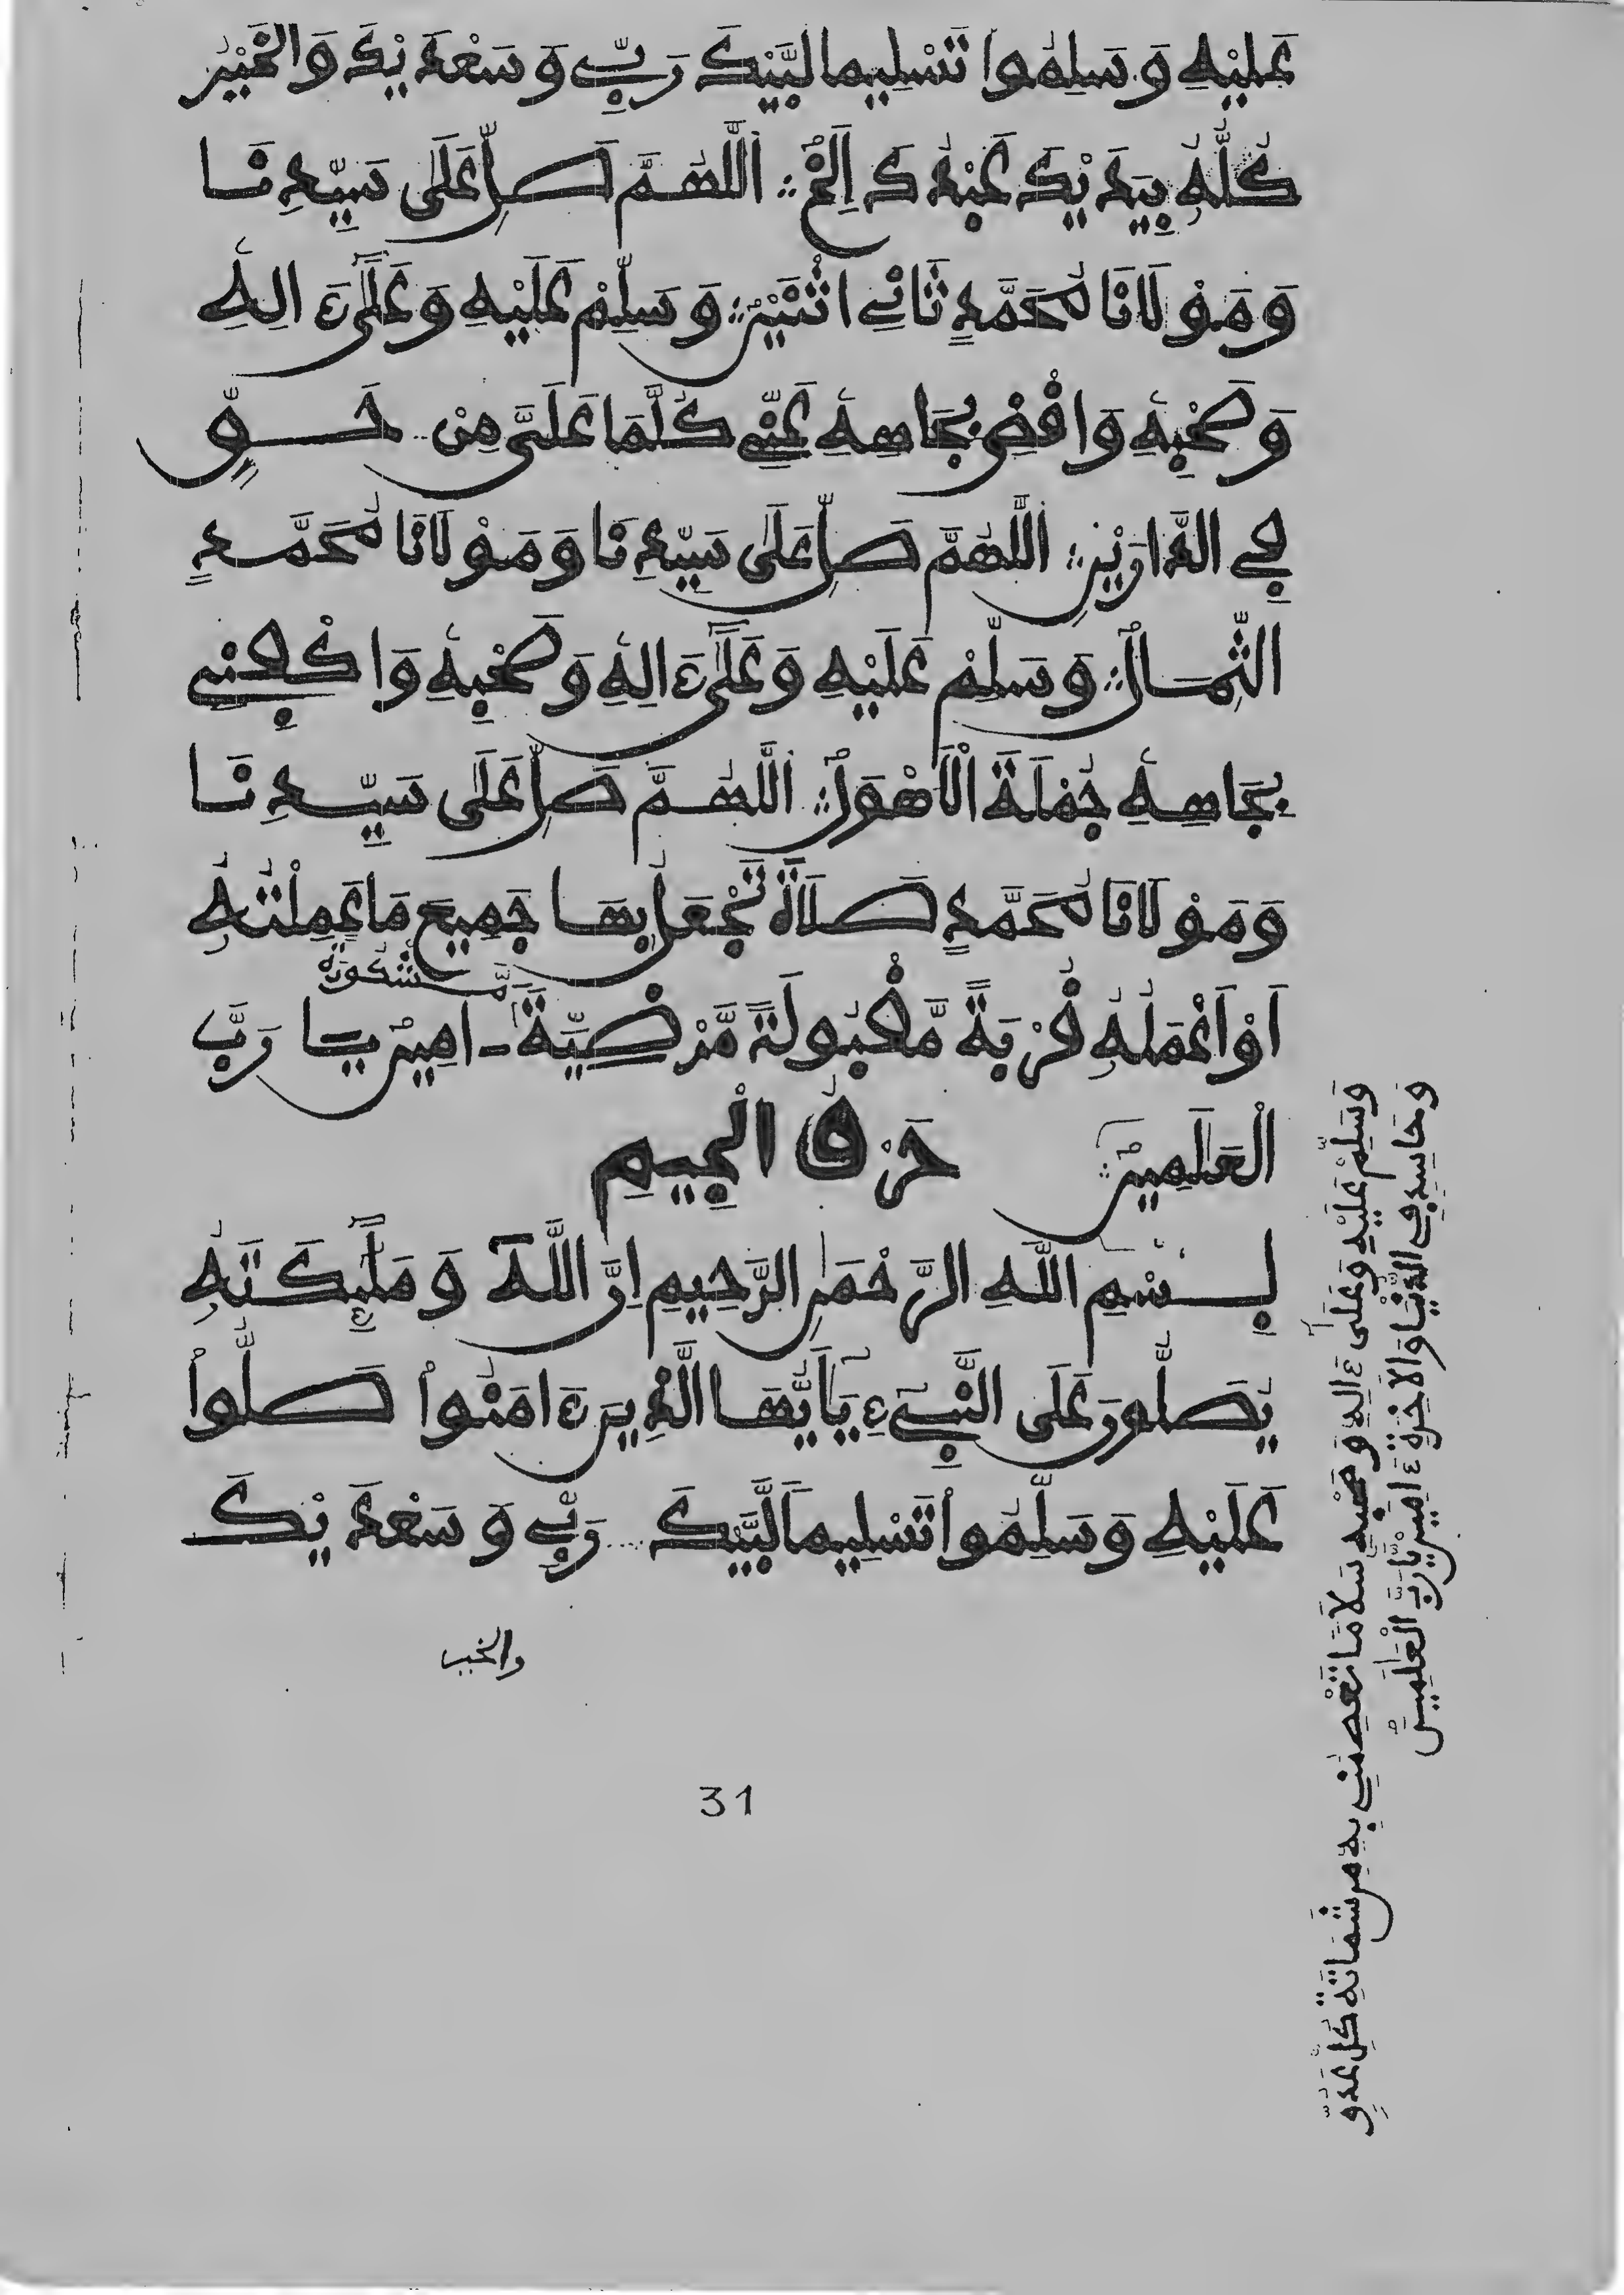 عَلَيْهِ وَسَلِّمُوا تَسْلِيمًا لَبَّيْكَ رَبِّي وَسَعْدَيْكَ وَالْخَيْرُ
كُلُّهُ بِيَدَيْكَ عَبْدُكَ إِلَخْ اَللَّهُمَّ صَلِّ عَلَى سَيِّدِنَا
وَمَوْلَانَا مُحَمَّدٍ ثَانِي اثْنَيْنِ وَسَلِّمْ عَلَيْهِ وَعَلَىٰ ءَالِهِ
وَصَحْبِهِ وَاقْضِ بِجَاهِهِ عَنِّي كُلَّمَا عَلَيَّ مِنْ حَقٍّ
فِي الدَّارَيْنِ اَللَّهُمَّ صَلِّ عَلَى سَيِّدِنَا وَمَوْلَانَا مُحَمَّدٍ
الثِّمَالِ وَسَلِّمْ عَلَيْهِ وَعَلَىٰ ءَالِهِ وَصَحْبِهِ وَاكْفِنِي
بِجَاهِهِ جُمْلَةَ الْأَهْوَلِ اَللَّهُمَّ صَلِّ عَلَى سَيِّدِنَا
وَمَوْلَانَا مُحَمَّدٍ صَلَاةً تَجْعَلُ بِهَا جَمِيعَ مَا عَمِلْتُهُ
مَّشْكُورَةً
اَوْ اَعْمَلُهُ قُرْبَةً مَّقْبُولَةً مَّرْضِيَّةً - اٰمِينَ يَا رَبَّ
الْعَلَمِينَ حَرْفُ الْجِيمِ
بِسْمِ اللَّهِ الرَّحْمَنِ الرَّحِيمِ اِنَّ اللَّهَ وَمَلَٰئِكَتَهُ
يُصَلُّونَ عَلَى النَّبِيءِ يَٰأَيُّهَا الَّذِينَ ءَامَنُوا صَلُّوا
عَلَيْهِ وَسَلِّمُوا تَسْلِيمًا لَبَّيْكَ رَبِّي وَسَعْدَيْكَ
والخير
31
وَسَلِّمْ عَلَيْهِ وَعَلَىٰ ءَالِهِ وَصَحْبِهِ سَلَامًا تَعْصِمُنِي بِهِ مِن شَمَاتَةِ كُلِّ عَدُوٍّ
وَحَاسِدٍ فِي الدُّنْيَا وَالْاَخِرَةِ ءَامِينَ يَا رَبَّ الْعَلَمِينَ